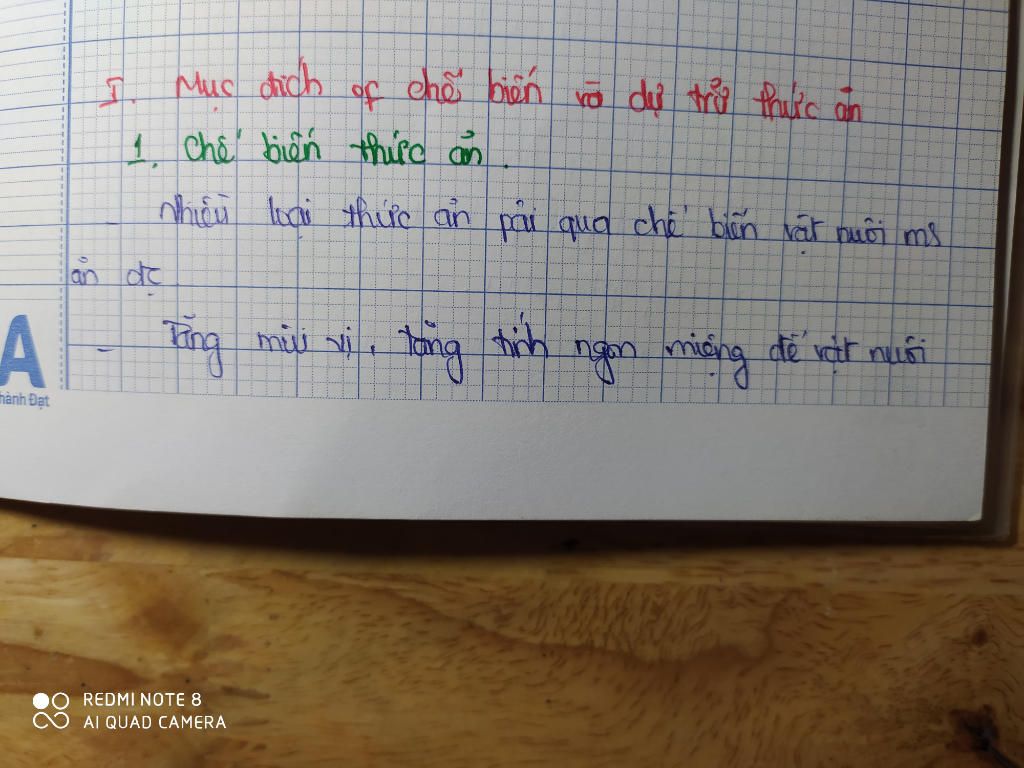 I. Mục đích of chế biến và dự trữ thức ăn
1. Chế biến thức ăn.
- Nhiều loại thức ăn pải qua chế biến vật nuôi ms
ăn đc
- Tăng mùi vị, tăng tính ngon miệng để vật nuôi
A
hành Đạt
REDMI NOTE 8
AI QUAD CAMERA